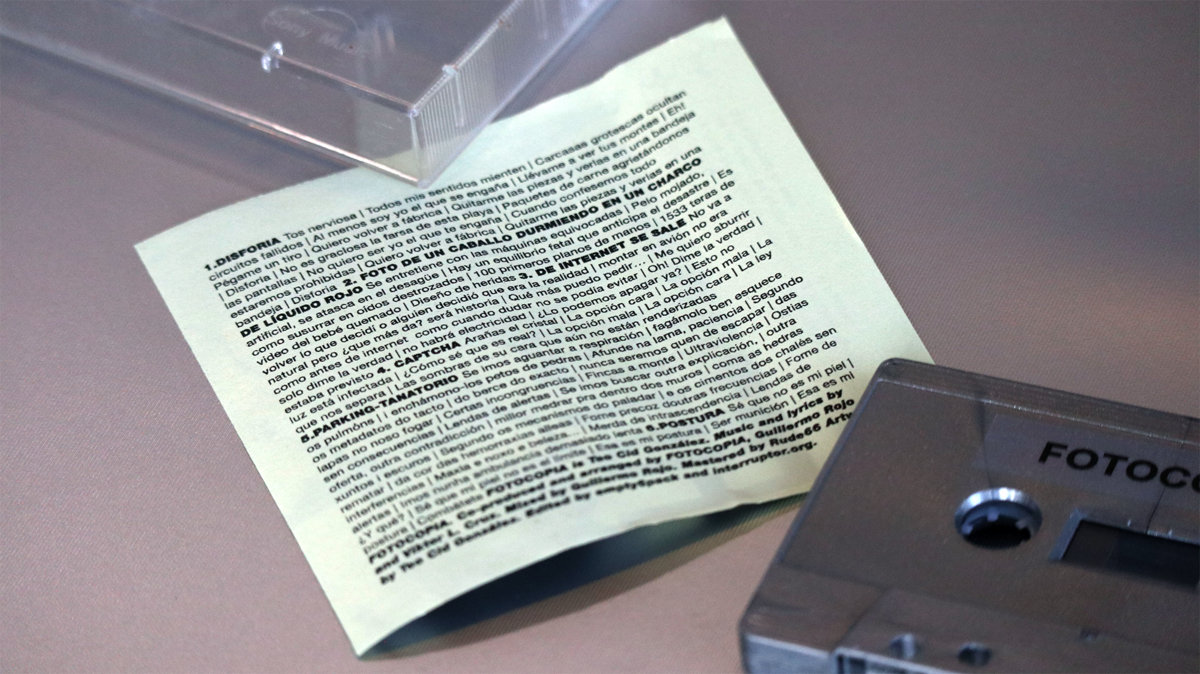 1.DISFORIA Tos nerviosa | Todos mis sentidos mienten | Carcasas grotescas ocultan
circuitos fallidos | Al menos soy yo el que se engaña | Llévame a ver tus montes | Eh!
Pégame un tiro | Quiero volver a fábrica | Quitarme las piezas y verlas en una bandeja
| Disforia | No es grasosa la grasa de esta playa | Paquetes de carne agrietándonos
las pantallas | No quiero ser yo el que te engaña | Cuando confesemos todo
estaremos prohibidas | Quiero volver a fábrica | Quitarme las piezas y verlas en una
bandeja | Disforia | 2. FOTO DE UN CABALLO DURMIENDO EN UN CHARCO
DE LÍQUIDO ROJO Se entretiene con las máquinas equivocadas | Pelo mojado,
artificial, se atasca en el desagüe | Hay un equilibrio fetal que anticipa el desastre | Es
como susurrar en oídos destrozados | 100 primeros planos de manos | 1533 teras de
video del bebé quemado | Diseño de heridas 3. DE INTERNET SE SALE No va a
volver lo que decidí o alguien decidió que era la realidad | montar en avión no era
natural pero ¿que más da? será historia | Qué más puedo pedir... | Me quiero aburrir
como antes de internet como cuando dudar no se podía evitar | Oh! Dime la verdad |
solo dime la verdad | no habrá electricidad | ¿Lo podemos apagar ya? | Esto no
estaba previsto 4. CAPTCHA Arañas el cristal | La opción cara | La opción mala | La
luz está infectada | ¿Cómo sé que es real? | La opción mala | La opción cara | La ley
que nos separa | Las sombras de su cara que aún no están renderizadas
5.PARKING-TANATORIO Se imos aguantar a respiración | fagámolo ben esquece
os pulmóns | enchámono-los petos de pedras | Afunde na lama, paciencia | Segundo
os metadatos do tacto | do berce do exacto | nunca seremos quen de escapar | das
lapas no noso fogar | Certas incongruencias | Fincas a monte | Ultraviolencia | Ostias
sen consecuencias | Lendas de alertas | Se imos buscar outra explicación, | outra
oferta, outra contradicción | mellor mentir pra dentro dos muros | coma as hedras
xuntos | Segundo os mecanismos do paladar | e os cimentos dos chalés sen
rematar | da cor das hemorraxias alleas | Fame prezoc doutras frecuencias | Fome de
interferencias | Maxia e noxo e beleza | Merda de intrascendencia | Lendas de
alertas | imos nunha ambulancia demasiado lenta 6.POSTURA Sé que no es mi piel |
¿Y qué? | Sé que mi piel no es el límite | Es mi postura | Ser munición | Esa es mi
postura | Combustible FOTOCOPIA is The Cid González. Music and lyrics by
FOTOCOPIA. Co-produced and arranged by FOTOCOPIA, Guillermo Rojo
and Viktor L. Crux. Mixed by Guillermo Rojo. Mastered by Rude66 Artwork
by The Cid González. Edited by empty6pack and interruptor.org.
FOTOCO